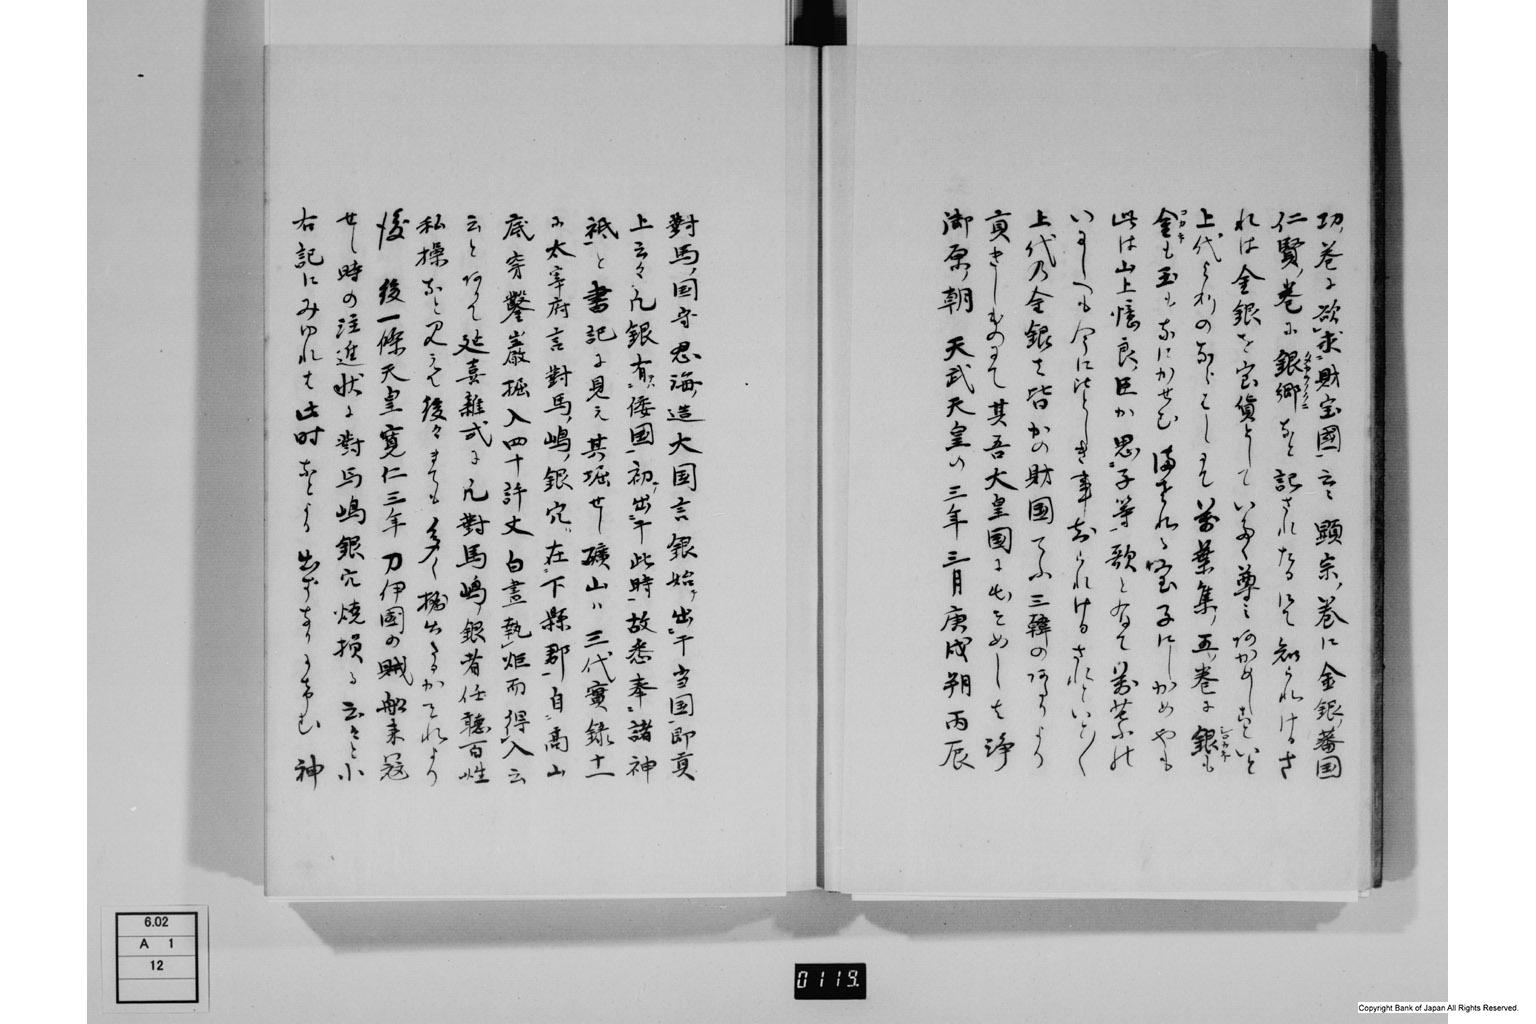 功ノ巻に欲求財宝国云々顕宗ノ巻に金銀ノ蕃国
仁賢ノ巻に銀郷なと記されたるにて知られけるさ
れは金銀を宝貨として いたく尊
上代よりの 万葉集ノ五ノ巻に銀も
金も玉もなにかせむ まされる宝子にしかめやも
此は山上憶良ノ臣か思子等ノ歌とありて
いにしへも今にひとしき事 られけるされといといと
上代の金銀は皆かの財国てふ三韓の より
貢きしものにて其吾大皇国に出そめしは浄
御原ノ朝 天武天皇ノ三年三月庚戌朔丙辰
對馬ノ国守忍海ノ造大国言銀始テ出于当国即貢
上云々凡銀有倭国初テ出于此時故悉奉諸神
祇と書記に見え其堀せし礦山ハ三代實録十一
に太宰府言對馬ノ嶋ノ銀穴在下縣郡自高山
底穿鑿巌堀入四十許丈白晝執炬而得入云
云と ありて延喜雑式に凡對馬嶋ノ銀者任聴百姓
私採なと見えて後々まても多く掘出 かそれより
後 後一條天皇寛仁三年刀伊國の賊船来冦
せし時の注進状に對馬嶋銀穴焼損る云々と小
右記にみゆれは此时なとより出す 神
6.02
A 1
12
0119.
Copyright Bank of Japan All Rights Reserved.